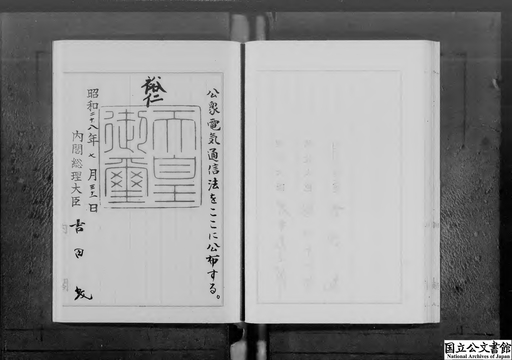 公衆電気通信法をここに公布する。
裕仁
天皇御璽
昭和二十八年七月三十一日
内閣総理大臣 吉田茂
国立公文書館
National Archives of Japan